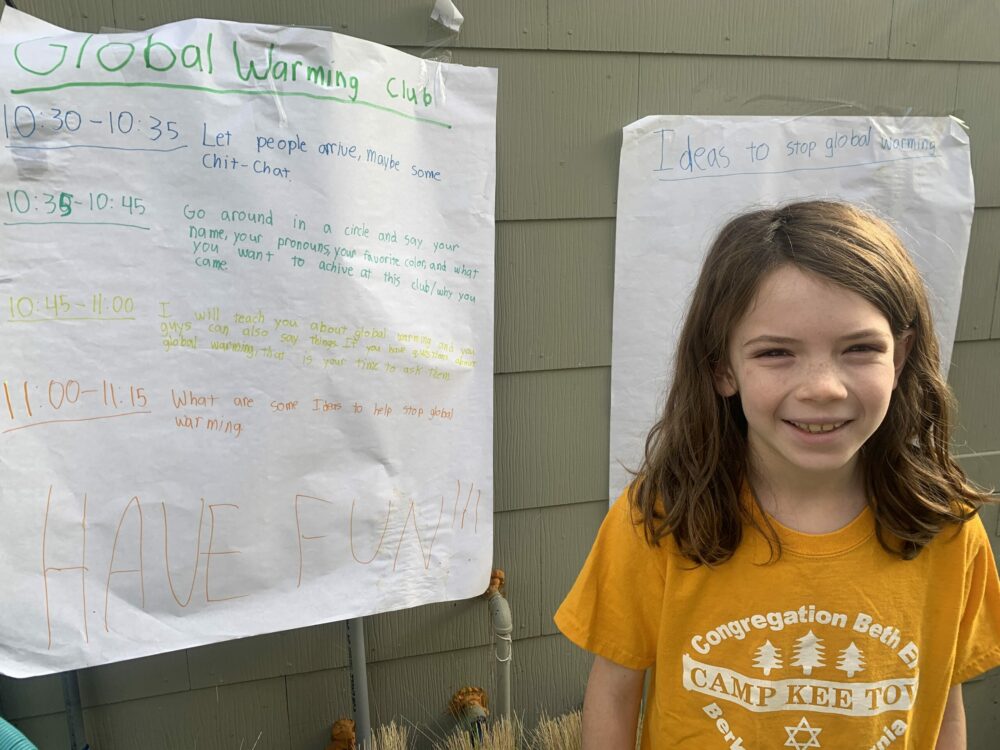 Global Warming Club
10:30-10:35
Let people arrive, maybe some
Chit-Chat.
10:35-10:45
Go around in a circle and say your
name, your pronouns, your favorite color, and what
you want to achive at this club/why you
came.
10:45-11:00
I will teach you about global warming and you
guys can also say things. If you have questions about
global warming that is your time to ask them
11:00-11:15
What are some Ideas to help stop global
warming
HAVE FUN!!!
Ideas to stop global warming
Congregation Beth
CAMP KEE TOV